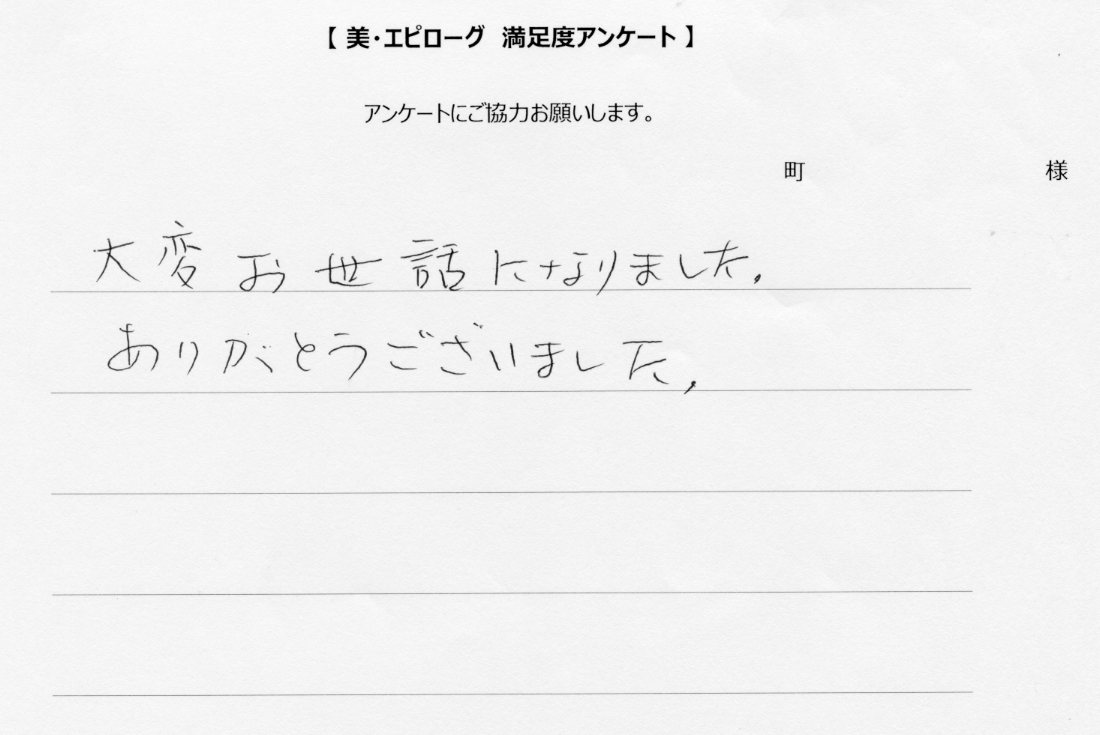 【 美・エピローグ 満足度アンケート 】
アンケートにご協力お願いします。
町 様
大変お世話になりました。
ありがとうございました。